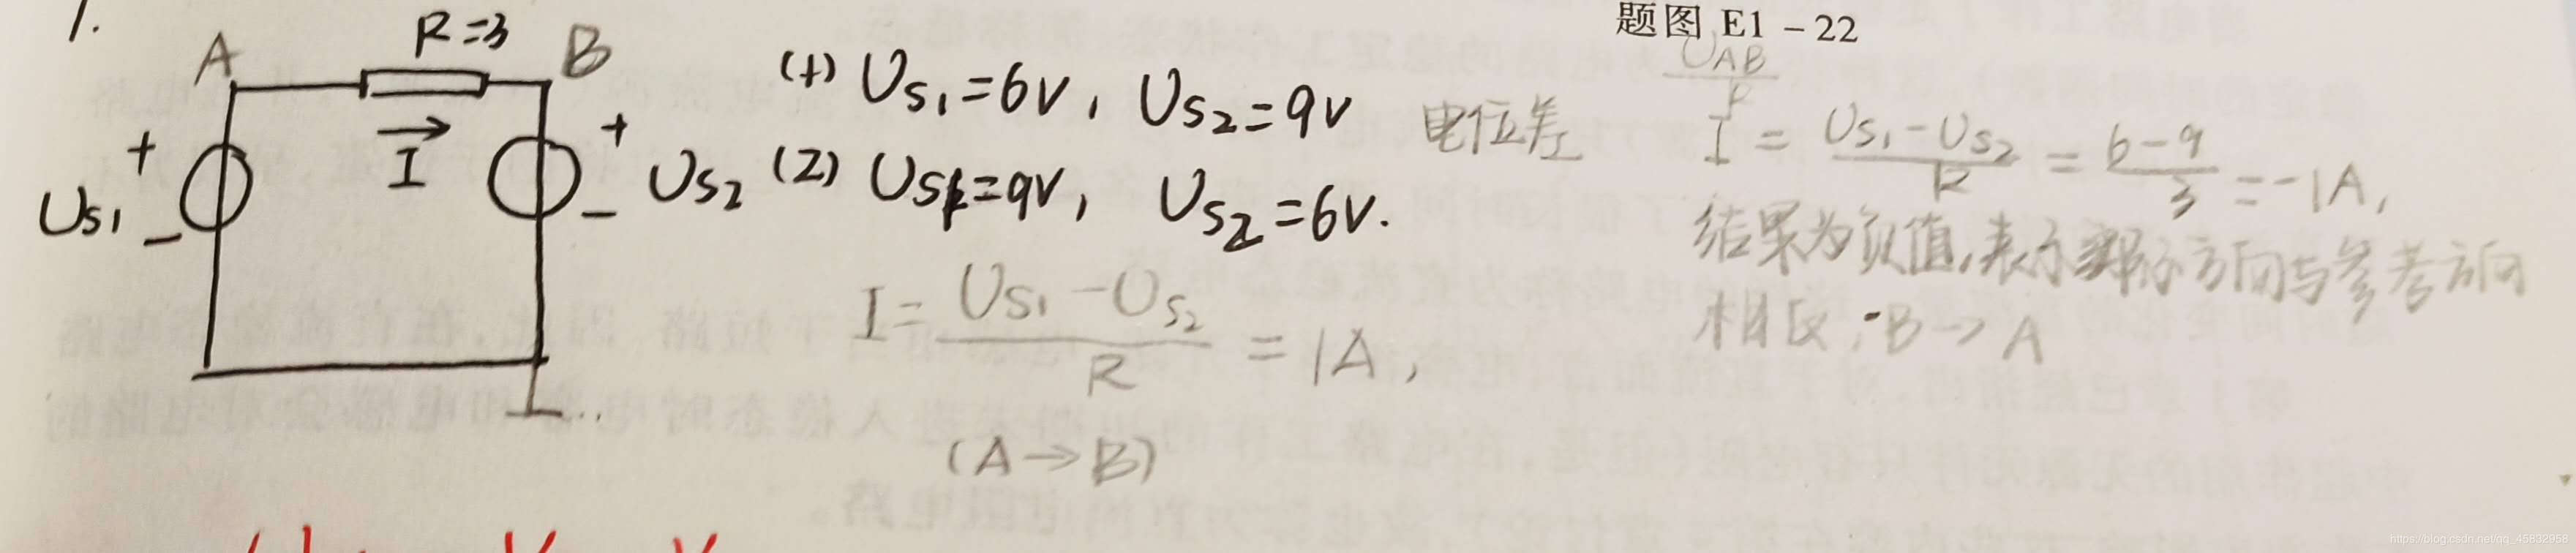 题图 E1-22
1.
R=3
A
B
I
+
US1
-
+
US2
-
(1) US1=6V, US2=9V
(2) US1=9V, US2=6V.
I = US1-US2 / R = 1A,
(A→B)
电位差
UAB / R
I = US1-US2 / R = 6-9 / 3 = -1A,
结果为负值,表示实际方向与参考方向
相反,B→A
https://blog.csdn.net/qq_45832958